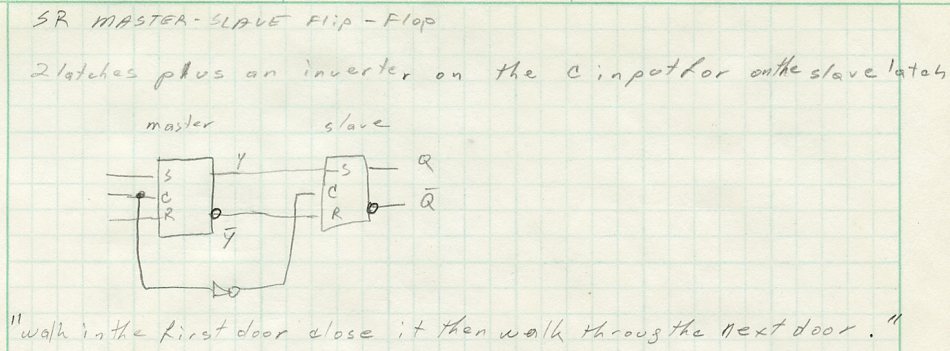 SR MASTER-SLAVE Flip-Flop
2 latches plus an inverter on the C input for on the slave latch
master slave
S Y S Q
C C Q̄
R R
Ȳ
"walk in the first door close it then walk throug the next door."